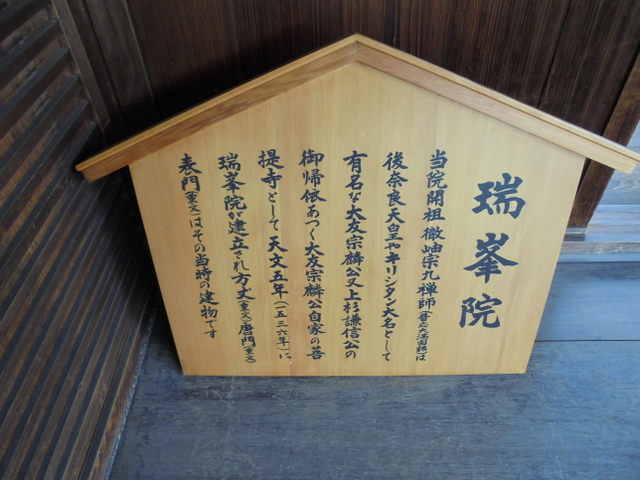 瑞峯院
当院開祖徹岫宗九禅師(普応大満国師)は
後奈良天皇やキリシタン大名として
有名な大友宗麟公又上杉謙信公の
御帰依あつく大友宗麟公自家の菩
提寺として天文五年(一五三六年)に
瑞峯院が建立され方丈(重文)唐門(重文)
表門(重文)はその当時の建物です